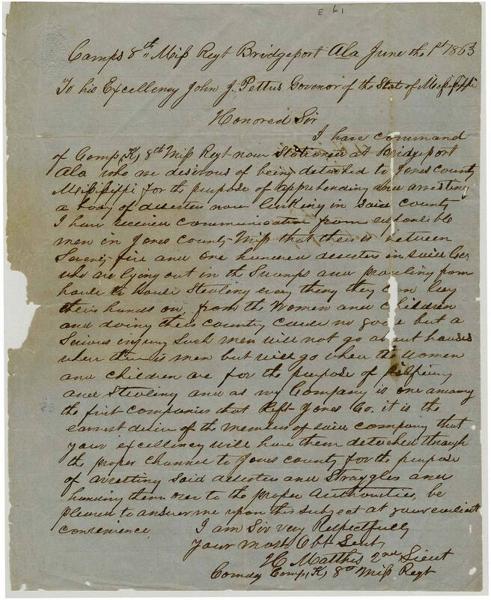 E 61
Camps 8th Miss Regt Bridgeport Ala June the 1st 1863
To his Excellency John J. Pettus Govornor of the State of Mississippi
Honored Sir
I have command
of Comp, K, 8th Miss Regt now Stationed at Bridgeport
Ala who are desirous of being detached to Jones county
Mississippi for the purpose of apprehending and arresting
a body of deserters now lurking in said county
I have received communication from responsible
men in Jones County Miss that there is between
Seventy five and one hundred deserters in said Co,
who are lying out in the Swamps and prowling from
house to house Steeling every thing they can lay
their hands on, from the Women and children
and doing their country cause no good but a
Serious injury Such men will not go about houses
where there is men but will go where the women
and children are for the purpose of pilfering
and Steeling and as my Company is one among
the first companies that left Jones Co. it is the
earnest desire of the members of said company that
your excellency will have them detached through
the proper channel to Jones county for the purpose
of arresting said deserters and Straglers and
handing them over to the proper Authorities, be
pleased to answer me upon this subject at your earliest
convenience
I am Sir Very Respectfully
Your most Obt Servt
Matthis 2nd Lieut
Comdg Comp, K, 8th Miss Regt